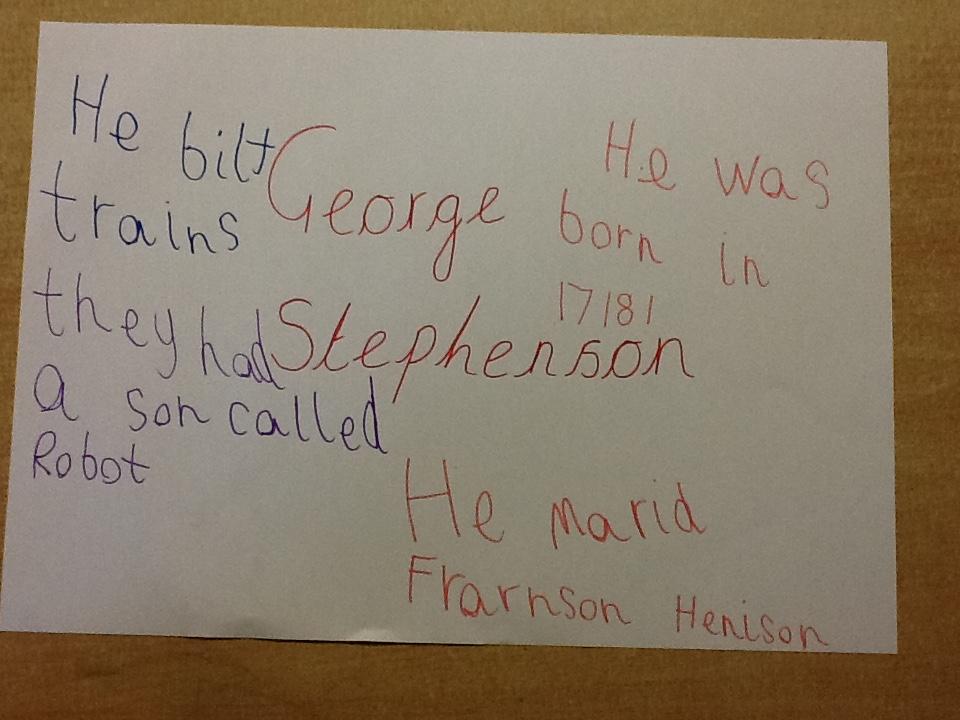 He bilt
trains
they had
a son called
Robot
George
Stephenson
He was
born in
17181
He marid
Frarnson Henison